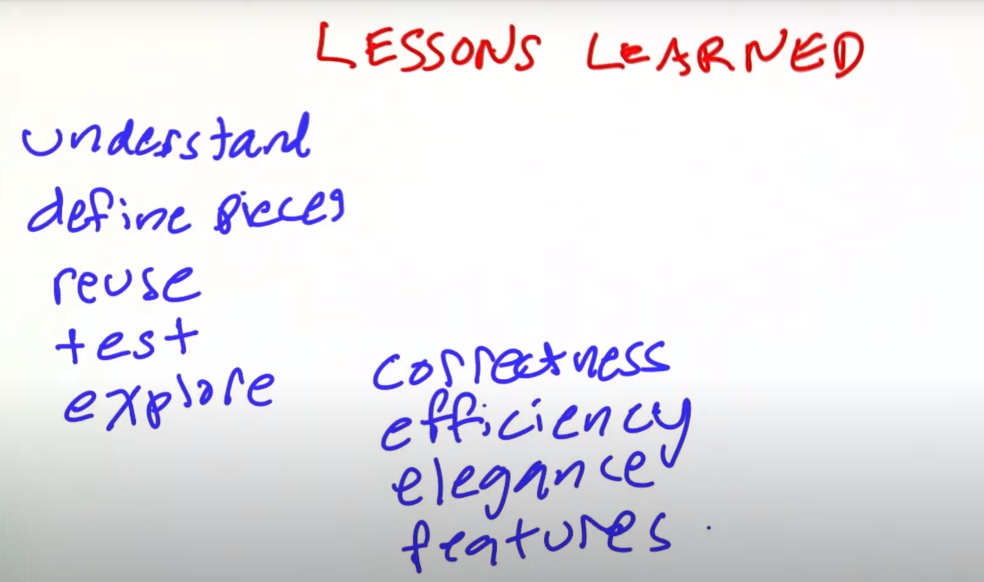 LESSONS LEARNED
understand
define pieces
reuse
test
explore
correctness
efficiency
elegance
features